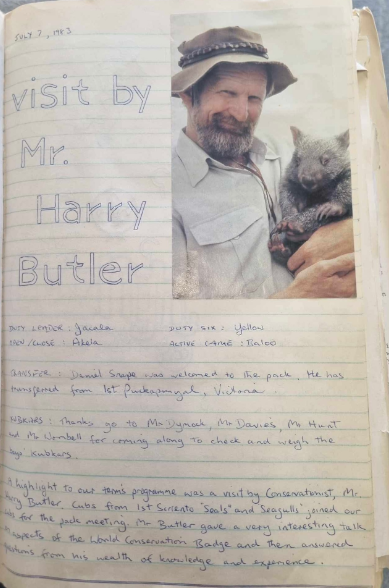 JULY 7, 1983
visit by
Mr.
Harry
Butler
DUTY LEADER : Jacala DUTY SIX : Yellow
OPEN/CLOSE : Akela ACTIVE GAME : Baloo
TRANSFER : Daniel Snape was welcomed to the pack. He has
transferred from 1st Puckapunyal, Victoria.
: Thanks go to Mr Dymock, Mr Davies, Mr Hunt
and Mr for coming along to check and weigh the
A highlight to our term's programme was a visit by Conservationist, Mr.
Harry Butler. Cubs from 1st "Seals" and Seagulls" joined our
for the pack meeting. Mr Butler gave a very interesting talk
on aspects of the World Conservation Badge and then answered
questions from his wealth of knowledge and experience.